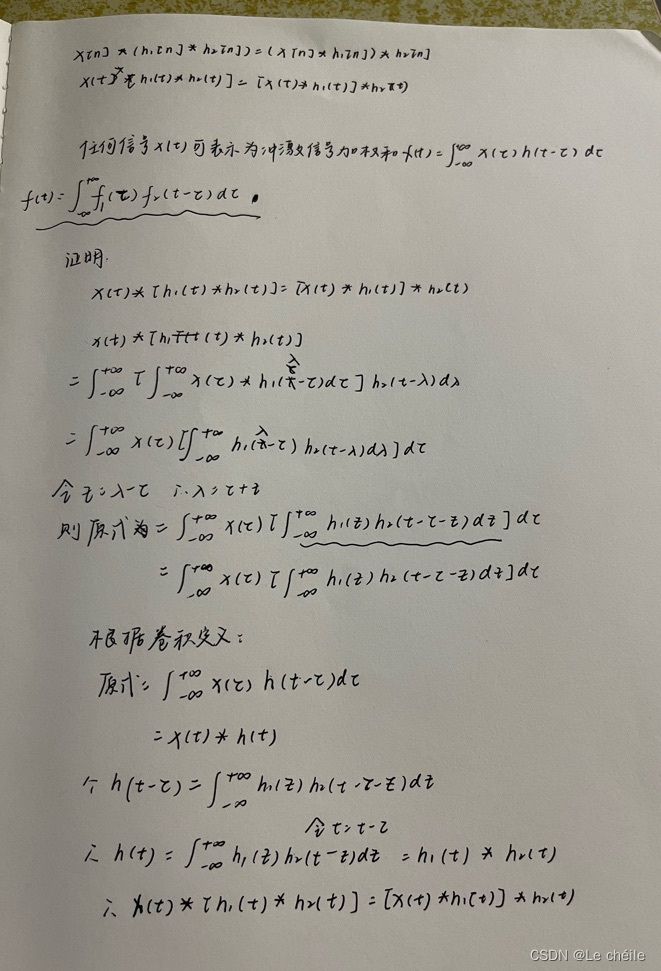 x[n] * (h₁[n] * h₂[n]) = (x[n] * h₁[n]) * h₂[n]
x(t) * [h₁(t) * h₂(t)] = [x(t) * h₁(t)] * h₂(t)
任何信号 x(t) 可表示为冲激信号加权和 f(t) = ∫_{-∞}^{∞} x(τ) h(t-τ) dτ
f(t) = ∫_{-∞}^{+∞} f₁(τ) f₂(t-τ) dτ .
证明.
x(t) * [h₁(t) * h₂(t)] = [x(t) * h₁(t)] * h₂(t)
x(t) * [h₁(t) * h₂(t)]
= ∫_{-∞}^{+∞} [∫_{-∞}^{+∞} x(τ) * h₁(λ-τ) dτ] h₂(t-λ) dλ
= ∫_{-∞}^{+∞} x(τ) [∫_{-∞}^{+∞} h₁(λ-τ) h₂(t-λ) dλ] dτ
令 z = λ-τ ∴ λ = τ+z
则原式为 = ∫_{-∞}^{+∞} x(τ) [∫_{-∞}^{+∞} h₁(z) h₂(t-τ-z) dz] dτ
= ∫_{-∞}^{+∞} x(τ) [∫_{-∞}^{+∞} h₁(z) h₂(t-τ-z) dz] dτ
根据卷积定义:
原式 = ∫_{-∞}^{+∞} x(τ) h(t-τ) dτ
= x(t) * h(t)
个 h(t-τ) = ∫_{-∞}^{+∞} h₁(z) h₂(t-τ-z) dz
令 t = t-τ
∴ h(t) = ∫_{-∞}^{+∞} h₁(z) h₂(t-z) dz = h₁(t) * h₂(t)
∴ x(t) * [h₁(t) * h₂(t)] = [x(t) * h₁(t)] * h₂(t)
CSDN @Le chéile